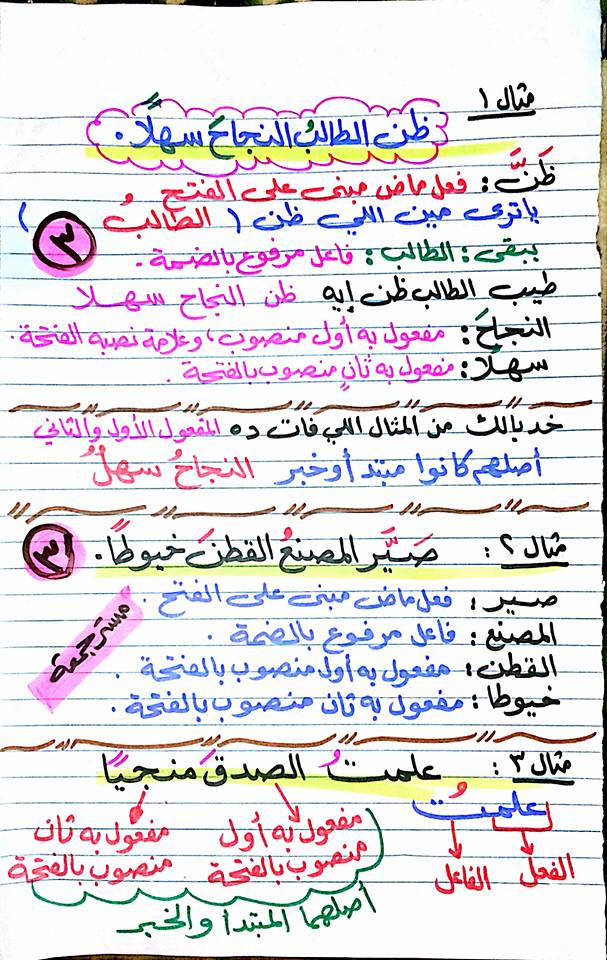 مثال ١
ظن الطالبُ النجاحَ سهلًا .
ظَنَّ : فعل ماض مبنى على الفتح
ياترى مين اللي ظن ( الطالبُ )
يبقى : الطالب : فاعل مرفوع بالضمة .
٣
طيب الطالب ظن إيه ظن النجاح سهلا
النجاحَ : مفعول به أول منصوب ، وعلامة نصبه الفتحة .
سهلًا : مفعول به ثانٍ منصوب بالفتحة .
خد بالك من المثال اللي فات ده المفعول الأول والثاني
أصلهم كانوا مبتدأ وخبر النجاحُ سهلٌ
مثال ٢ : صَيَّر المصنعُ القطنَ خيوطًا .
٣
صير : فعل ماض مبنى على الفتح .
المصنع : فاعل مرفوع بالضمة .
القطن : مفعول به أول منصوب بالفتحة .
خيوطا : مفعول به ثان منصوب بالفتحة .
مستر جمعة
مثال ٣ : علمتُ الصدقَ منجيًا
علمتُ
الفعل
الفاعل
مفعول به أول
منصوب بالفتحة
مفعول به ثان
منصوب بالفتحة
أصلهما المبتدأ والخبر